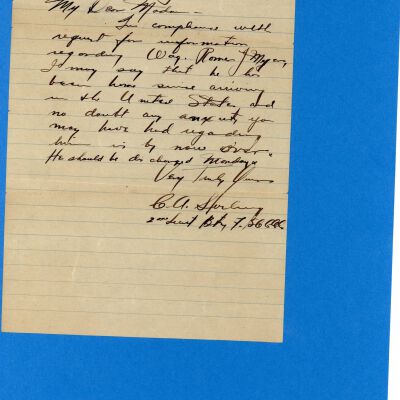 My Dear Madam —
In compliance with
request for information
regarding Wag. Romer J Myers
I may say that he has
been home since arriving
in the United States, and
no doubt any anxiety you
may have had regarding
him is by now over.
He should be discharged Monday.
Very Truly Yours
C. A.
2nd Lieut Bty F. 56 CAC